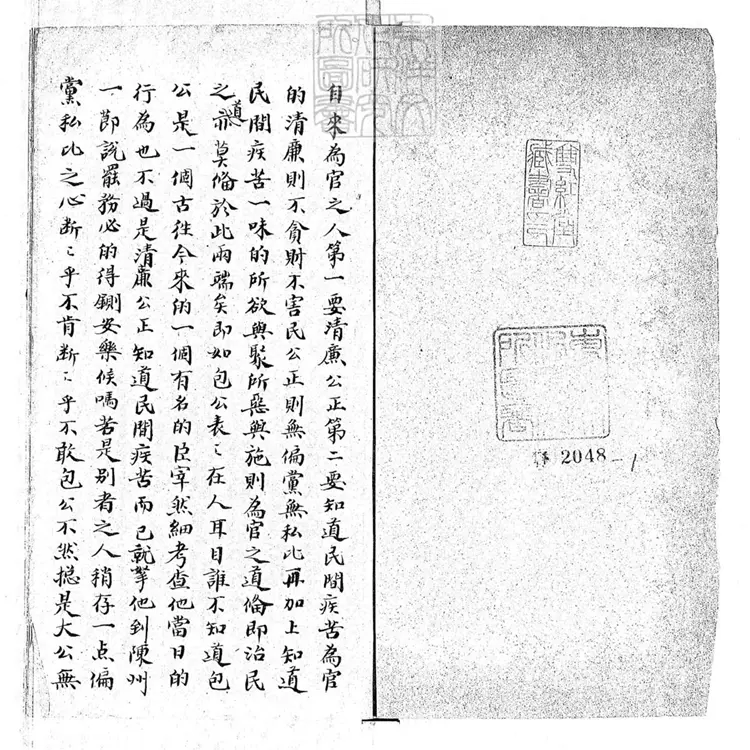 雙紅堂
藏書印
2048-1
自来為官之人第一要清廉公正第二要知道民間疾苦為官
的清廉則不貪財不害民公正則無偏黨無私比再加上知道
民間疾苦一味的所欲與聚所惡與施則為官之道俻即治民
之道亦莫俻於此兩端矣即如包公表〻在人耳目誰不知道包
公是一個古徃今來的一個有名的臣宰然細考查他當日的
行為也不過是清廉公正知道民間疾苦而已就拏他到陳州
一節說罷務必的得鍘安樂候嗎若是別者之人稍存一点偏
黨私比之心断〻乎不肯断〻乎不敢包公不然揔是大公無